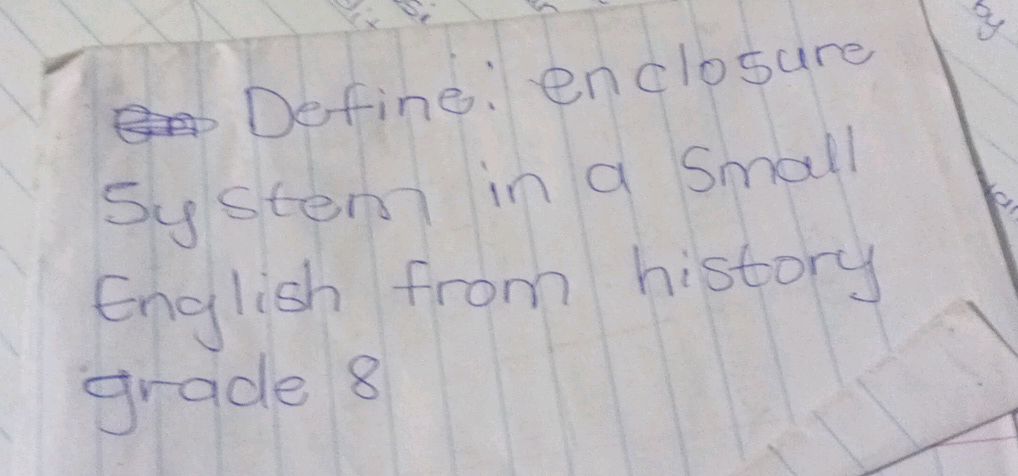 Define: enclosure
System in a small
English from history
grade 8
by